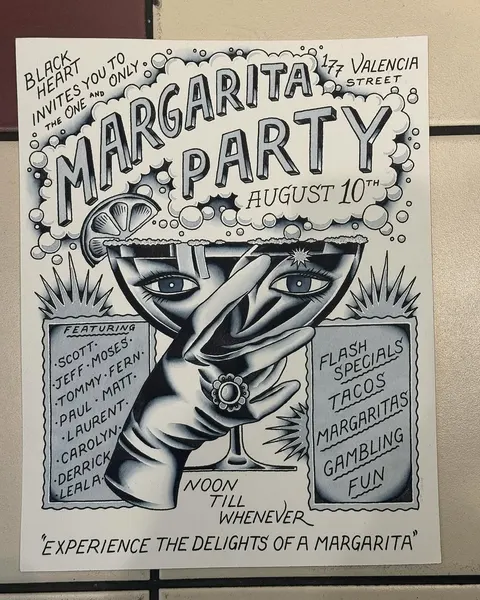 BLACK
HEART
INVITES YOU TO
THE ONE AND ONLY
177 VALENCIA
STREET
MARGARITA
PARTY
AUGUST 10TH
FEATURING
·SCOTT·
·JEFF·MOSES·
·TOMMY·FERN·
·PAUL·MATT·
·LAURENT·
·CAROLYN·
·DERRICK·
·LEALA·
FLASH
SPECIALS
TACOS
MARGARITAS
GAMBLING
FUN
NOON
TILL
WHENEVER
"EXPERIENCE THE DELIGHTS OF A MARGARITA"